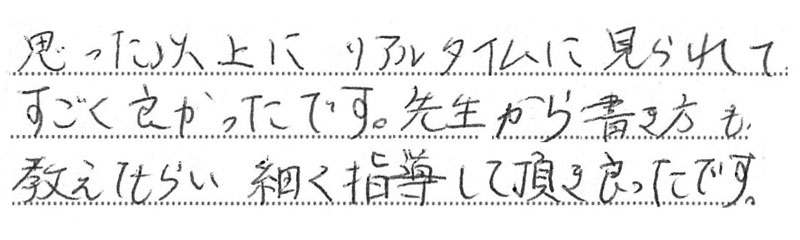 思った以上に リアルタイムに 見られて
すごく良かったです。先生から書き方も
教えてもらい 細く指導して頂き良ったです。